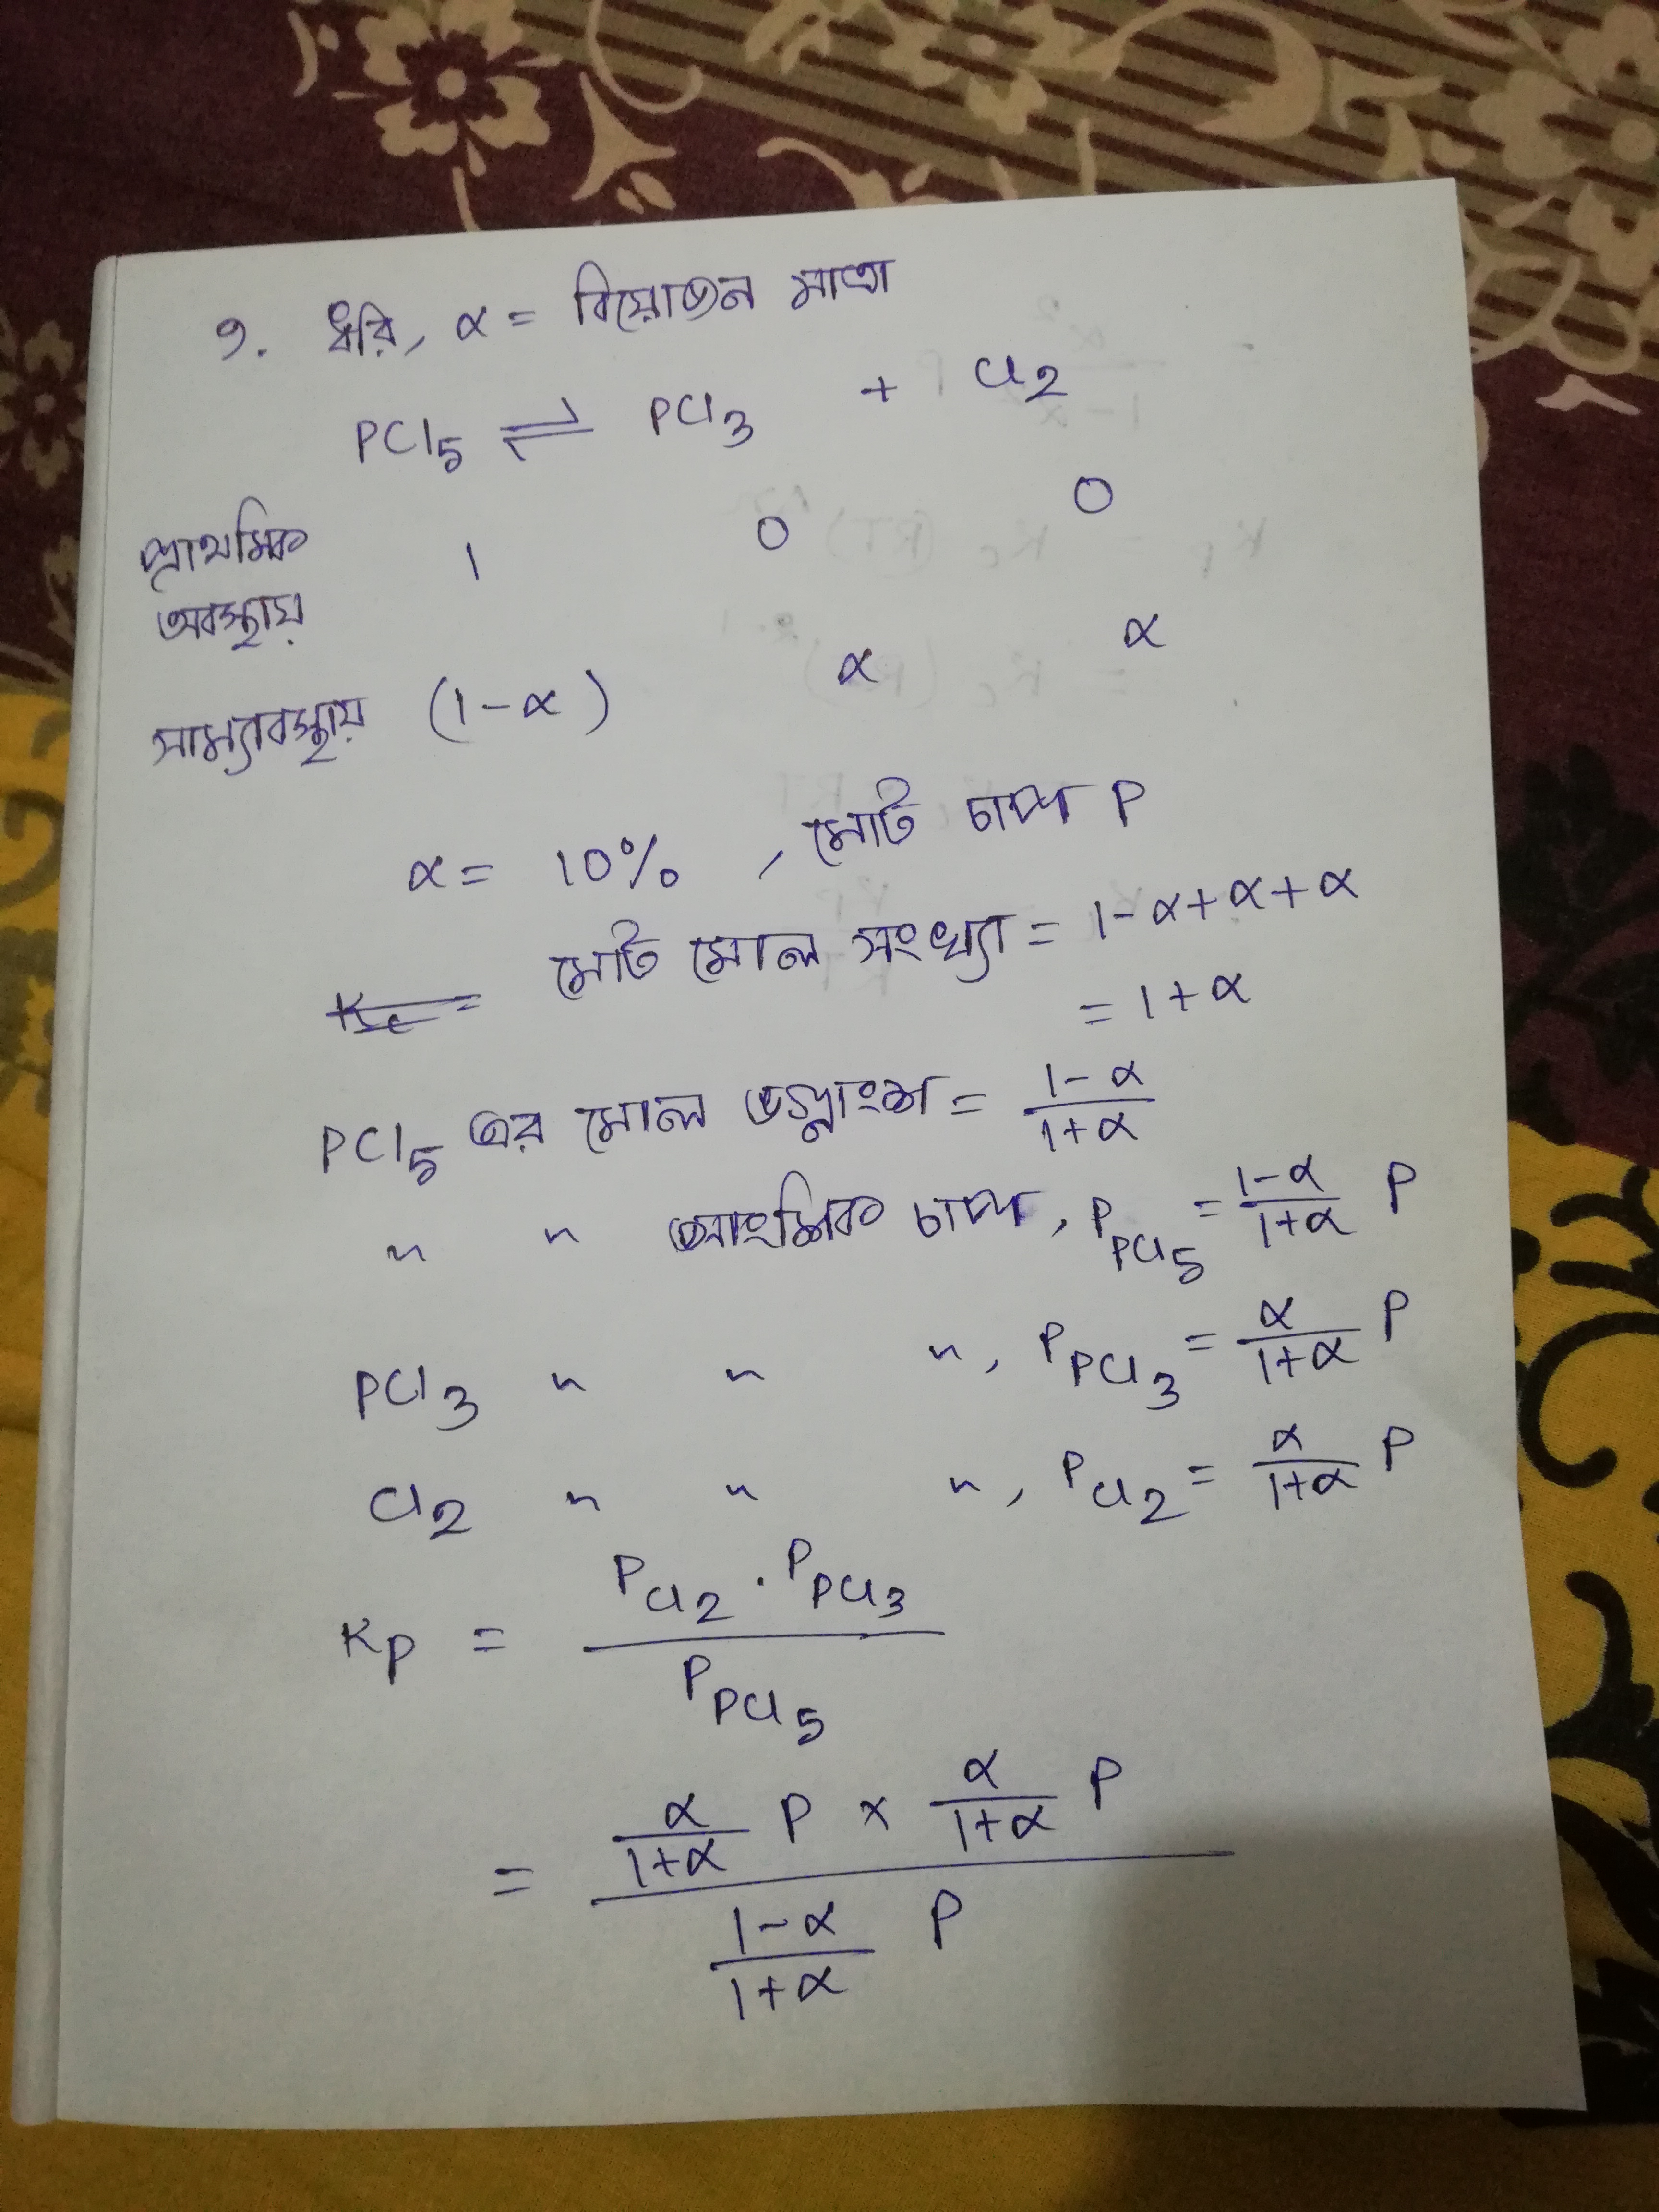 ১. ধরি, α = বিয়োজন মাত্রা
PCl5 ⇌ PCl3 + Cl2
প্রাথমিক অবস্থায় 1 0 0
সাম্যাবস্থায় (1-α) α α
α = 10% , মোট চাপ P
মোট মোল সংখ্যা = 1-α+α+α
= 1+α
PCl5 এর মোল ভগ্নাংশ = (1-α)/(1+α)
" " আংশিক চাপ, P_PCl5 = (1-α)/(1+α) P
PCl3 " " ", P_PCl3 = α/(1+α) P
Cl2 " " ", P_Cl2 = α/(1+α) P
Kp = (P_Cl2 . P_PCl3)/P_PCl5
= (α/(1+α) P × α/(1+α) P)/((1-α)/(1+α) P)